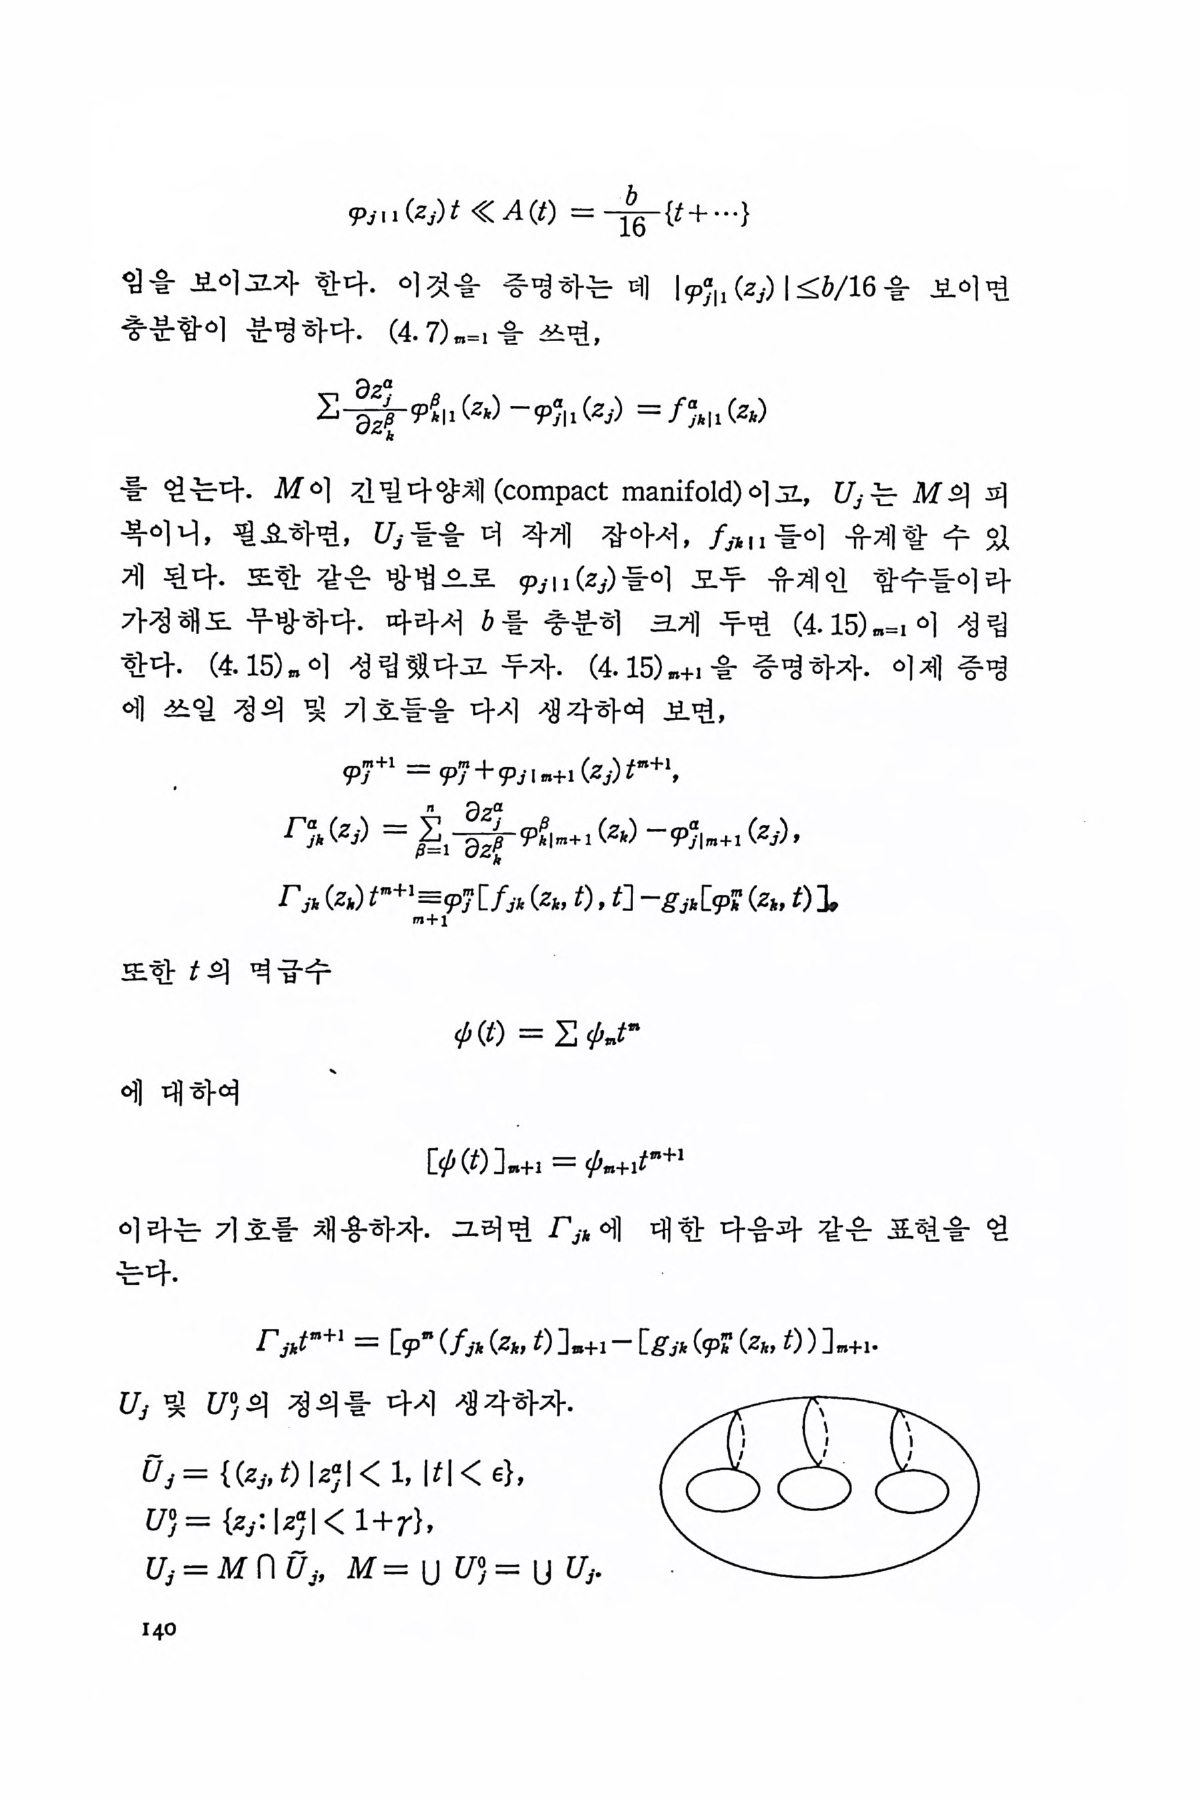 φ_{j|1}(z_j)t ≪ A(t) = b/16 {t+⋯}
임을 보이고자 한다. 이것을 증명하는 데 |φ^α_{j|1}(z_j)|≤b/16을 보이면
충분함이 분명하다. (4.7)_{m=1}을 쓰면,
∑ ∂z^α_j/∂z^β_k φ^β_{k|1}(z_k) − φ^α_{j|1}(z_j) = f^α_{jk|1}(z_k)
를 얻는다. M이 긴밀다양체(compact manifold)이고, U_j는 M의 피
복이니, 필요하면, U_j들을 더 작게 잡아서, f_{jk|1}들이 유계할 수 있
게 된다. 또한 같은 방법으로 φ_{j|1}(z_j)들이 모두 유계인 함수들이라
가정해도 무방하다. 따라서 b를 충분히 크게 두면 (4.15)_{m=1}이 성립
한다. (4.15)_m이 성립했다고 두자. (4.15)_{m+1}을 증명하자. 이제 증명
에 쓰일 정의 및 기호들을 다시 생각하여 보면,
φ^{m+1}_j = φ^m_j + φ_{j|m+1}(z_j)t^{m+1},
Γ^α_{jk}(z_j) = ∑^n_{β=1} ∂z^α_j/∂z^β_k φ^β_{k|m+1}(z_k) − φ^α_{j|m+1}(z_j),
Γ_{jk}(z_k)t^{m+1} ≡_{m+1} φ^m_j[f_{jk}(z_k, t), t] − g_{jk}[φ^m_k(z_k, t)].
또한 t의 멱급수
ψ(t) = ∑ ψ_m t^m
에 대하여
[ψ(t)]_{m+1} = ψ_{m+1}t^{m+1}
이라는 기호를 채용하자. 그러면 Γ_{jk}에 대한 다음과 같은 표현을 얻
는다.
Γ_{jk}t^{m+1} = [φ^m(f_{jk}(z_k, t)]_{m+1} − [g_{jk}(φ^m_k(z_k, t))]_{m+1}.
U_j 및 U^0_j의 정의를 다시 생각하자.
Ũ_j = {(z_j, t)| |z^α_j| < 1, |t| < ϵ},
U^0_j = {z_j: |z^α_j| < 1+γ},
U_j = M ∩ Ũ_j, M = ∪ U^0_j = ∪ U_j.
140